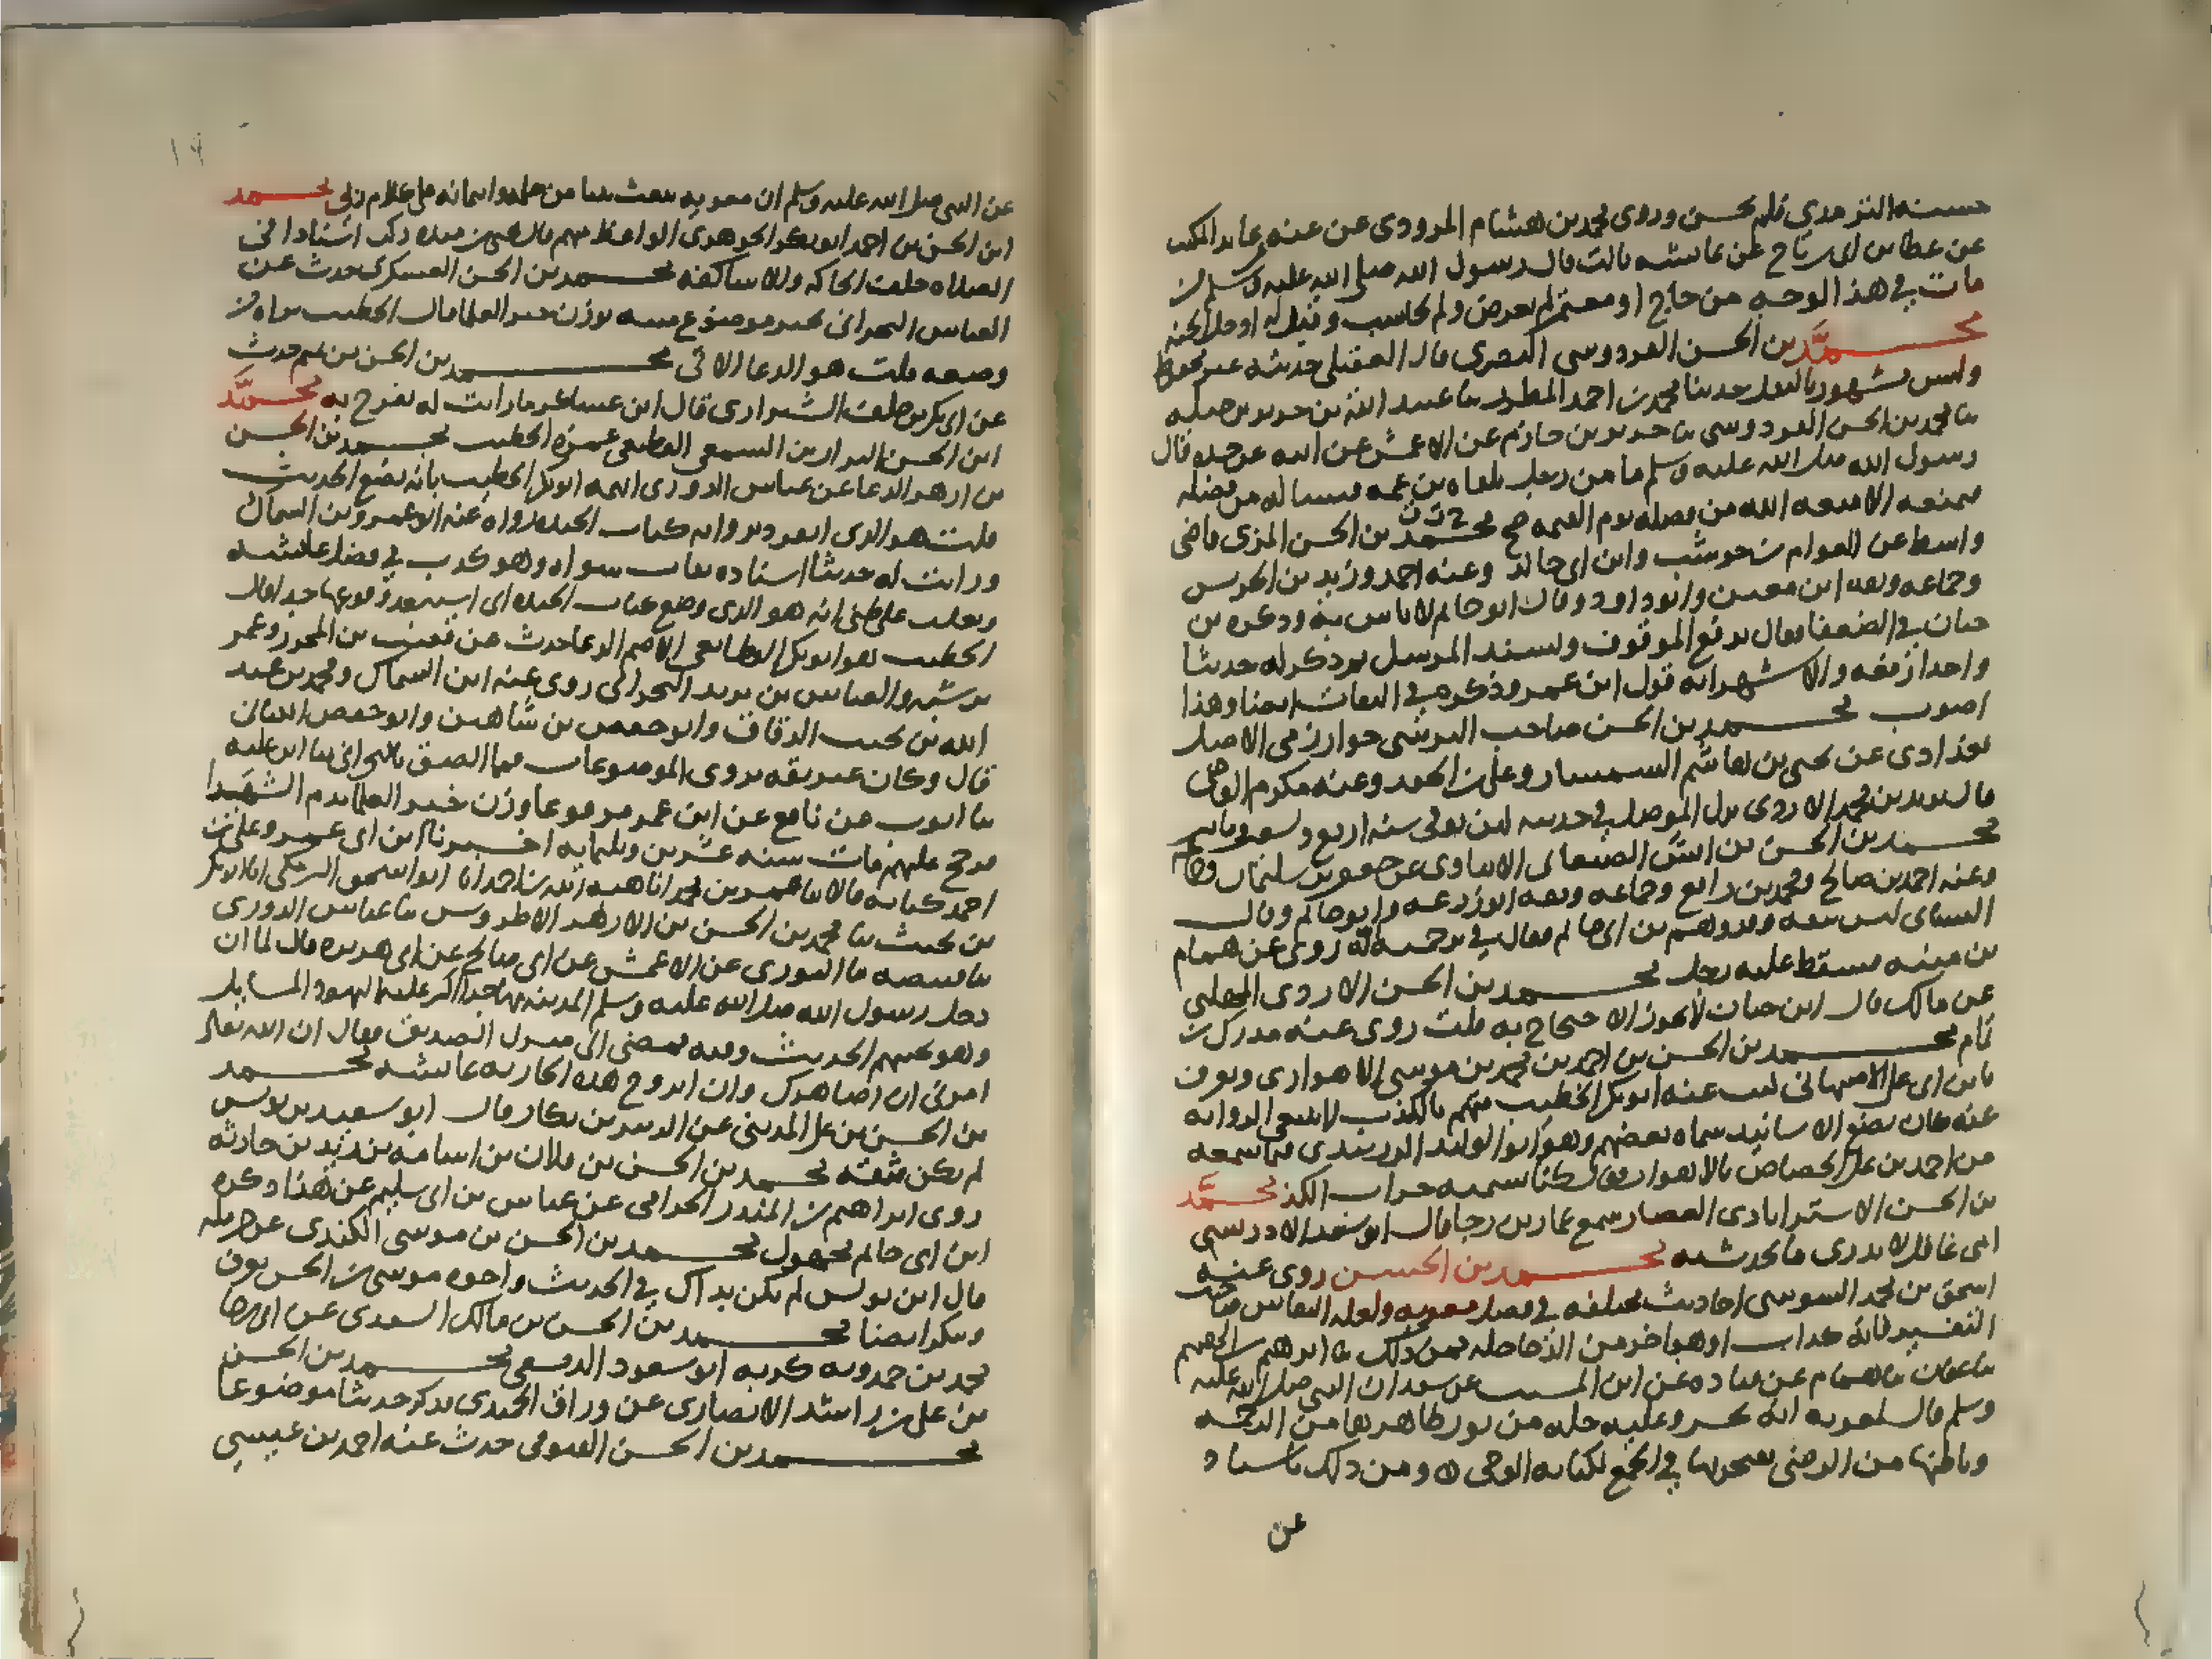 حسنه الترمذي فلم يحسن وروى محمد بن هشام المروذي عن عنه عن عابد المكتب
عن عطا بن ابي رباح عن عائشه قالت قال رسول الله صلى الله عليه وسلم من
مات في هذا الوجه من حاج او معتمر لم يعرض ولم يحاسب وقيل له ادخل الجنه
محمد بن الحسن القردوسي البصري قال العقيلي حديثه غير محفوظ
وليس بمشهور بالنقل حدثنا محمد بن احمد المطرز ثنا عبيد الله بن جرير بن جبله
ثنا محمد بن الحسن القردوسي ثنا جرير بن حازم عن الاعمش عن ابيه عن جده قال
رسول الله صلى الله عليه وسلم ما من رجل يلقاه بن عمه فيساله من فضله
فيمنعه الا منعه الله من فضله يوم القيمه صح محمد بن الحسن المزني قاضي
واسط عن العوام بن حوشب وابن ابي خالد وعنه احمد وزيد بن الحريش
وجماعه وثقه ابن معين وابو داود وقال ابو حاتم لا باس به وذكره بن
حبان في الضعفا فقال يرفع الموقوف ويسند المرسل ثم ذكر له حديثا
واحدا رفعه والاشهر انه قول ابن عمر وذكره في الثقات ايضا وهذا
اصوب محمد بن الحسن صاحب النرسي خوارزمي الاصل
بغدادي عن يحيى بن هاشم السمسار وعلي بن الجعد وعنه مكرم القاضي
قال يزيد بن محمد الازدي نزل الموصل في حديثه لين توفي سنه اربع وتسعين ومايتين
محمد بن الحسن بن اتش الصنعاني الابناوي عن جعفر بن سليمان وهمام
وعنه احمد بن صالح ومحمد بن رافع وجماعه وثقه ابو زرعه وابو حاتم وقال
النسائي ليس بثقه وقد وهم بن ابي حاتم فقال في ترجمته انه روى عن همام
بن منبه فسقط عليه رجل محمد بن الحسن الازدي المهلبي
عن مالك قال ابن حبان لا يجوز الاحتجاج به قلت روى عنه مدرك بن
تمام محمد بن الحسن بن احمد بن محمد بن موسى الاهوازي ويعرف
بابن ابي علي الاصبهاني كتب عنه ابو بكر الخطيب متهم بالكذب لا ينبغي الروايه
عنه كان يضع الاسانيد سماه بعضهم وهو ابو الوليد الدربندي فيما سمعه
من احمد بن علي الجصاص بالاهواز يقول كنا نسميه جراب الكذب محمد
بن الحسن الاستراباذي القصار سمع عمار بن رجا قال ابو سعد الادريسي
امي غافل لا يدري ما يحدث به محمد بن الحسن روى عنه
اسحق بن محمد السوسي احاديث مختلقه في فضل معويه ولعله النقاش صاحب
التفسير فانه كذاب او هو اخر من الدجاجله فمن ذلك ثنا ابرهيم بن الهيثم
ثنا عفان ثنا همام عن قتاده عن ابن المسيب عن سعد ان النبي صلى الله عليه
وسلم قال لمعويه انه يحشر وعليه حله من نور ظاهرها من الرحمه
وباطنها من الرضى يفتخر بها في الجمع لكتابه الوحي ومن ذلك باسناد
عن
١٩
عن النبي صلى الله عليه وسلم ان معويه يبعث نبيا من حلمه وائتمانه على كلام ربي محمد
ابن الحسن بن احمد ابو بكر الجوهري الواعظ متهم
الصلاه خلف الحاكه والاساكفه محمد بن الحسن العسكري حدث عن
العباس البحراني بخبر موضوع متنه يوزن حبر العلما قال الخطيب نراه من
وضعه قلت هو الدعا الاتي محمد بن الحسن بن حدث
عن ابي بكر بن خلف الشيرازي قال ابن عساكر ما رايت له يفرح به محمد
ابن الحسن البزار بن السمعي القطيعي غمزه الخطيب محمد بن الحسن
بن ازهر الدعا عن عباس الدوري اتهمه ابو بكر الخطيب بانه يضع الحديث
قلت هو الذي انفرد بروايه كتاب الحيده رواه عنه ابو عمرو بن السماك
ورايت له حديثا اسناده ثقات سواه وهو كذب في فضل عائشه
ويغلب على ظني انه هو الذي وضع كتاب الحيده اني استبعد وقوعها جدا قال
الخطيب هو ابو بكر القطايعي الاصم الدعا حدث عن قعنب بن المحرر وعمر
بن شبه والعباس بن يزيد البحراني روى عنه ابن السماك ومحمد بن عبد
الله بن نجيب الدقاق وابو حفص بن شاهين وابو حفص الكتاني
قال وكان غير ثقه يروي الموضوعات فما الصق بالبحراني ثنا ابن عليه
ثنا ايوب عن نافع عن ابن عمر مرفوعا وزن حبر العلما بدم الشهدا
فرجح عليهم مات سنه عشرين وثلثمايه اخبرنا ابن ابي عمرو وعلي بن
احمد كتابه قالا ثنا عمر بن محمد انا هبه الله بن احمد انا ابو اسحق البرمكي انا ابو بكر
بن بخيت ثنا محمد بن الحسن بن الازهر الاطروش ثنا عباس الدوري
ثنا قبيصه ثنا الثوري عن الاعمش عن ابي صالح عن ابي هريره قال لما ان
دخل رسول الله صلى الله عليه وسلم المدينه مهاجرا اكثر عليه اليهود المسايل
وهو يجيبهم الحديث وفيه فمضى الى منزل الصديق فقال ان الله تعالى
امرني ان اصاهرك وان اتزوج هذه الجاريه عائشه محمد
بن الحسن بن علي المديني عن الزبير بن بكار قال ابو سعيد بن يونس
لم يكن بثقه محمد بن الحسن بن فلان بن اسامه بن زيد بن حارثه
روى ابراهيم بن المنذر الحزامي عن عباس بن ابي سليم عن هذا ذكره
ابن ابي حاتم مجهول محمد بن الحسن بن موسى الكندي عن حرمله
قال ابن يونس لم يكن بذاك في الحديث واخوه موسى بن الحسن يعرف
وينكر ايضا محمد بن الحسن بن مالك السعدي عن ابي رجا
محمد بن حمدويه كذبه ابو سعود الدمشقي محمد بن الحسن
بن علي بن راشد الانصاري عن وراق الحميدي يذكر حديثا موضوعا
محمد بن الحسن حدث عنه احمد بن عيسى